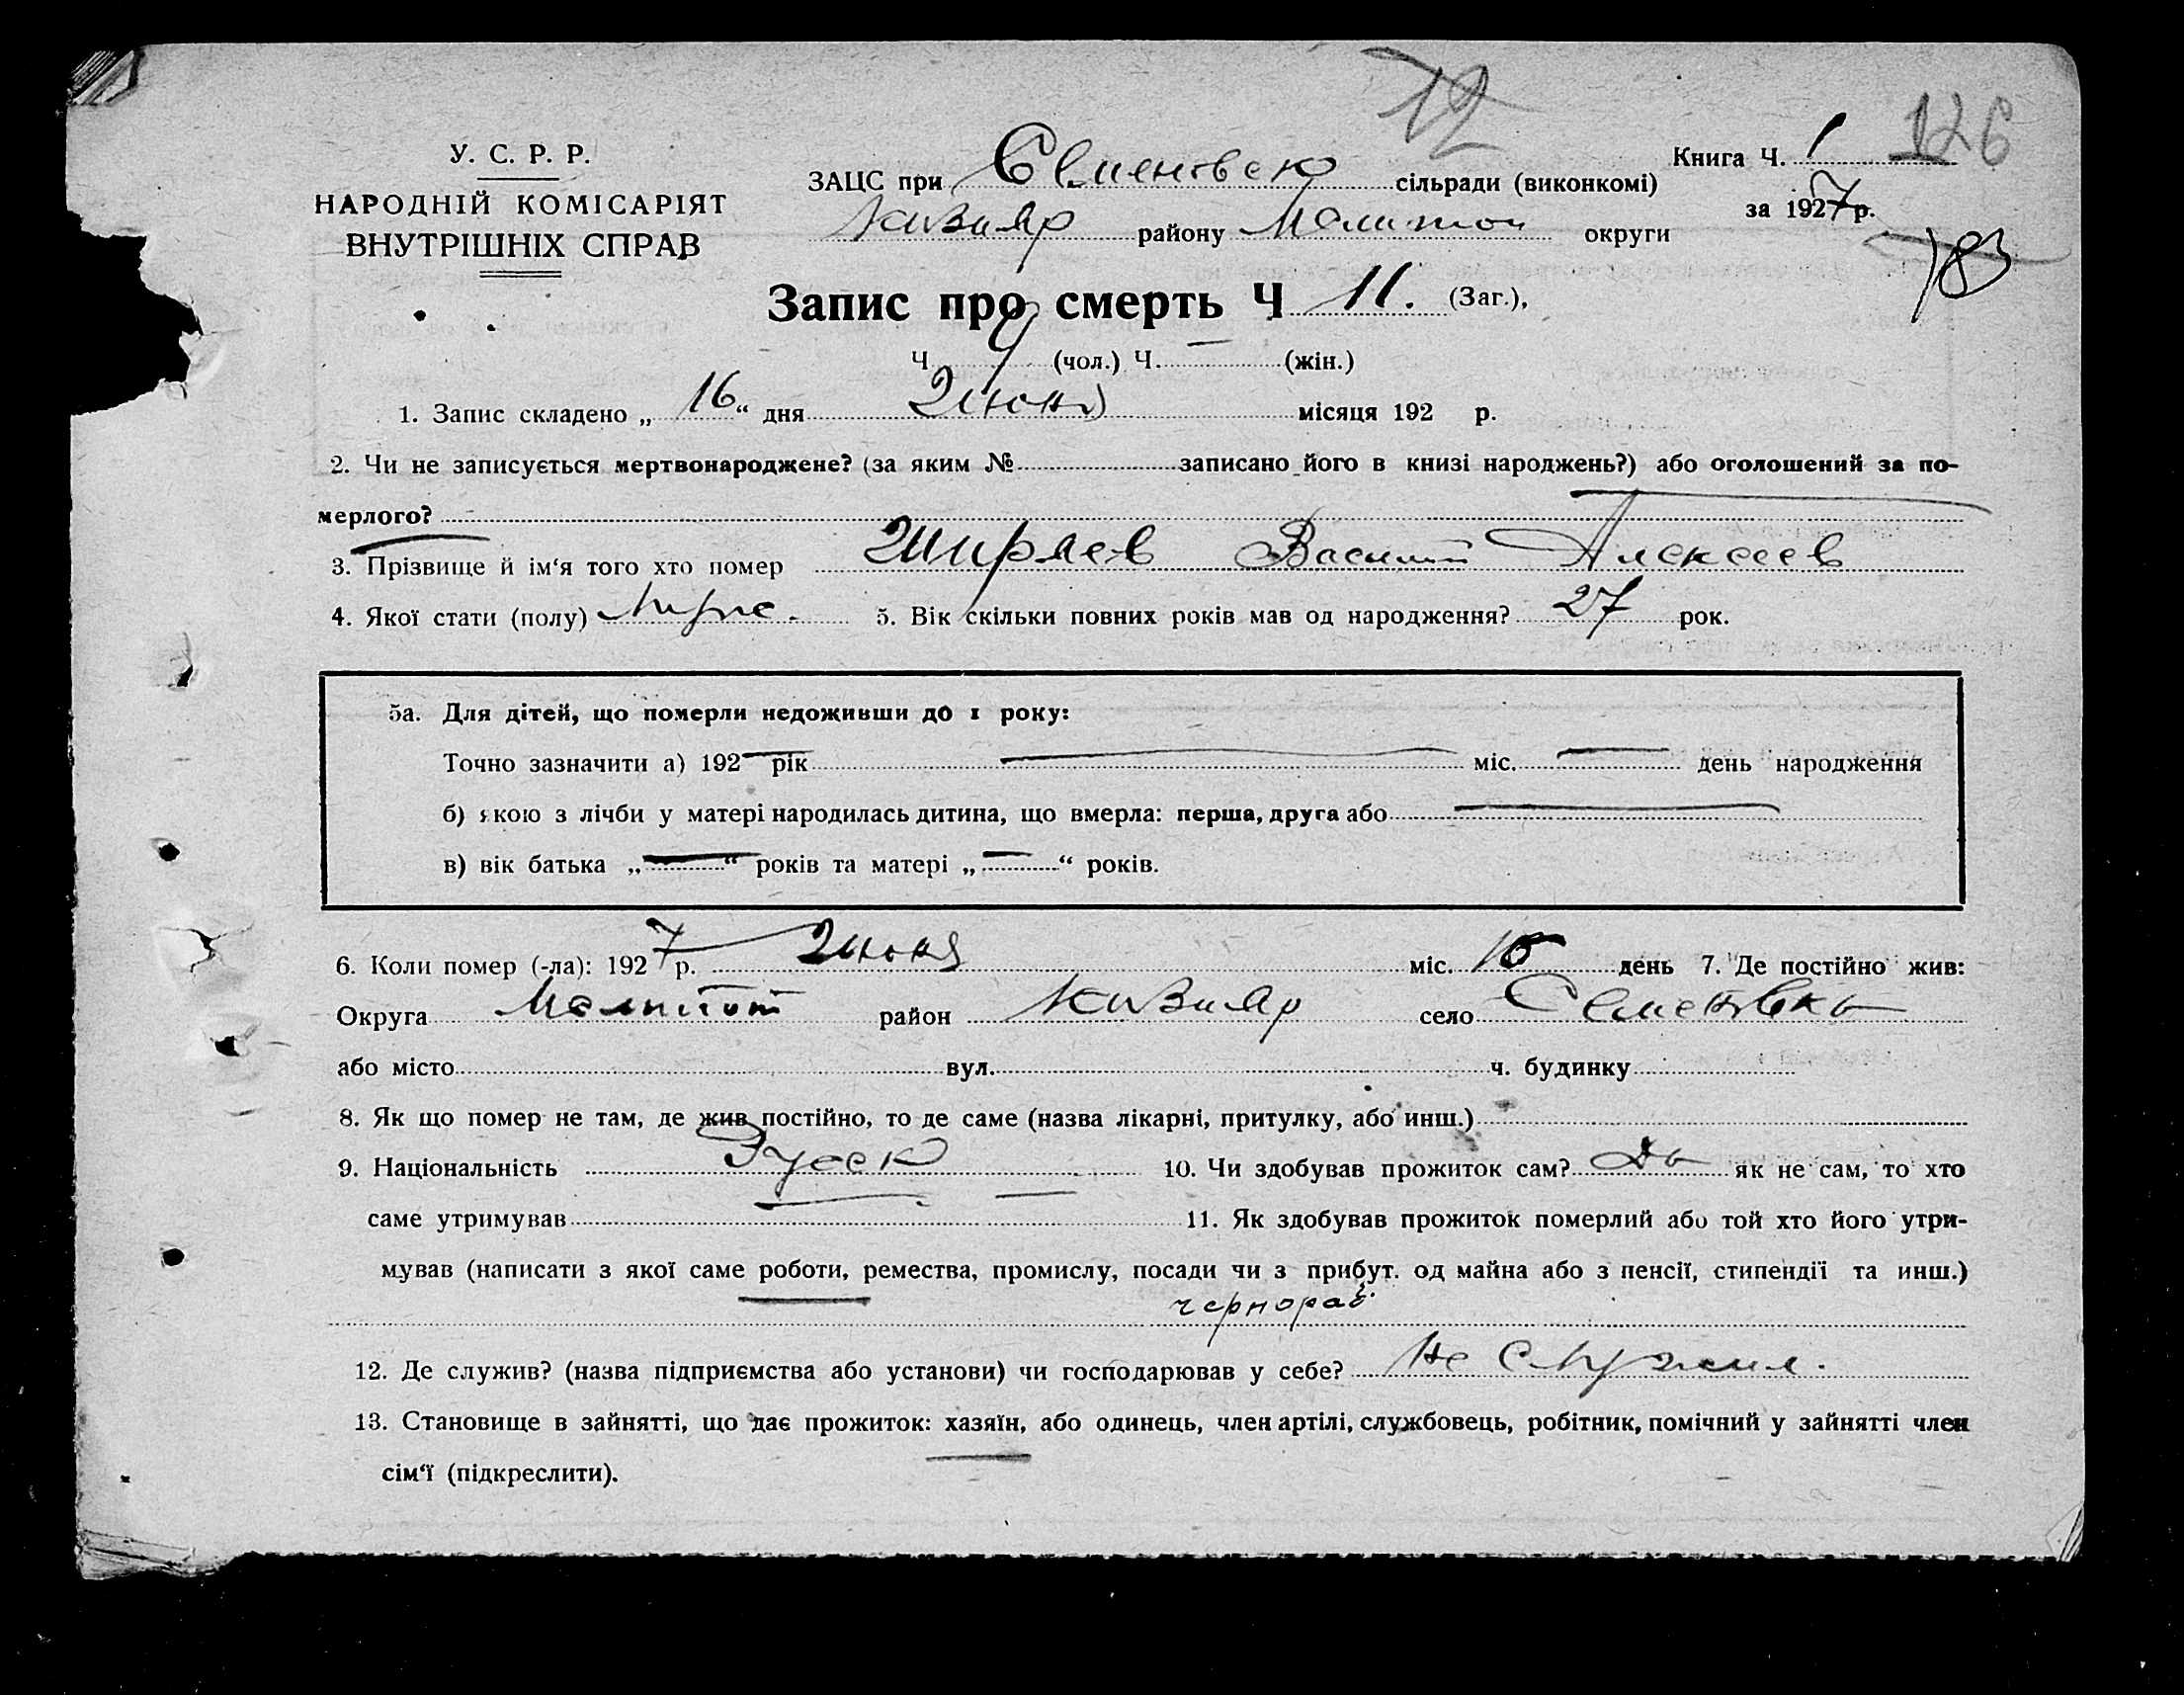 12
У. С. Р. Р.
НАРОДНІЙ КОМІСАРІЯТ
ВНУТРІШНІХ СПРАВ
ЗАЦС при Семеновско сільради (виконкомі)
Книга Ч. 1 126
за 1927 р.
районy Мелитоп округи
183
Запис про смерть Ч 11. (Заг.),
Ч 9 (чол.) Ч. — (жін.)
1. Запис складено „16“ дня Июня місяця 192 р.
2. Чи не записується мертвонароджене? (за яким № записано його в книзі народжень?) або оголошений за по-
мерлого?
3. Прізвище й ім‘я того хто помер Ширяев Василий Алексеев
4. Якої стати (полу) Муже. 5. Вік скільки повних років мав од народження? 27 рок.
5а. Для дітей, що померли недоживши до 1 року:
Точно зазначити а) 192— рік — міс. — день народження
б) якою з лічби у матері народилась дитина, що вмерла: перша, друга або —
в) вік батька „—“ років та матері „—“ років.
6. Коли помер (-ла): 1927 р. Июня міс. 15 день 7. Де постійно жив:
Округа Мелитоп район Кизияр село Семеновка
або місто вул. ч. будинку
8. Як що помер не там, де жив постійно, то де саме (назва лікарні, притулку, або инш.)
9. Національність Русск 10. Чи здобував прожиток сам? Да як не сам, то хто
саме утримував 11. Як здобував прожиток померлий або той хто його утри-
мував (написати з якої саме роботи, ремества, промислу, посади чи з прибут. од майна або з пенсії, стипендії та инш.)
чернораб.
12. Де служив? (назва підприємства або установи) чи господарював у себе? Не служил.
13. Становище в зайнятті, що дає прожиток: хазяїн, або одинець, член артілі, службовець, робітник, помічний у зайнятті член
сім‘ї (підкреслити).